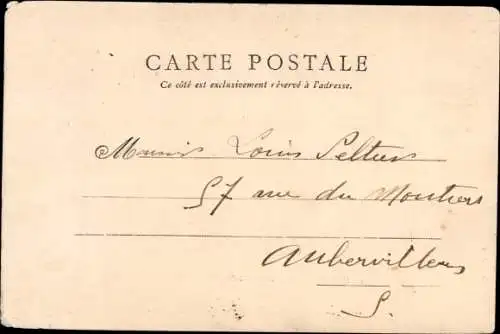 CARTE POSTALE
Ce côté est exclusivement réservé à l'adresse.
Monsieur Louis Peltier
57 rue du Moutiers
Aubervilliers
S.